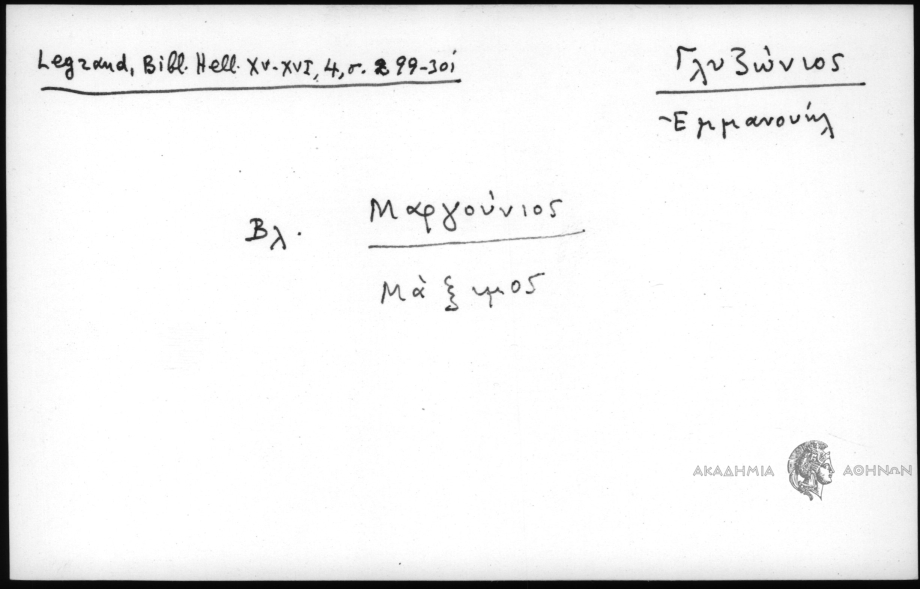 Legrand, Bibl. Hell. XV-XVI, 4, σ. 299-301
Γλυζώνιος
Ἐμμανουήλ
Βλ. Μαργούνιος
Μάξιμος
ΑΚΑΔΗΜΙΑ ΑΘΗΝΩΝ